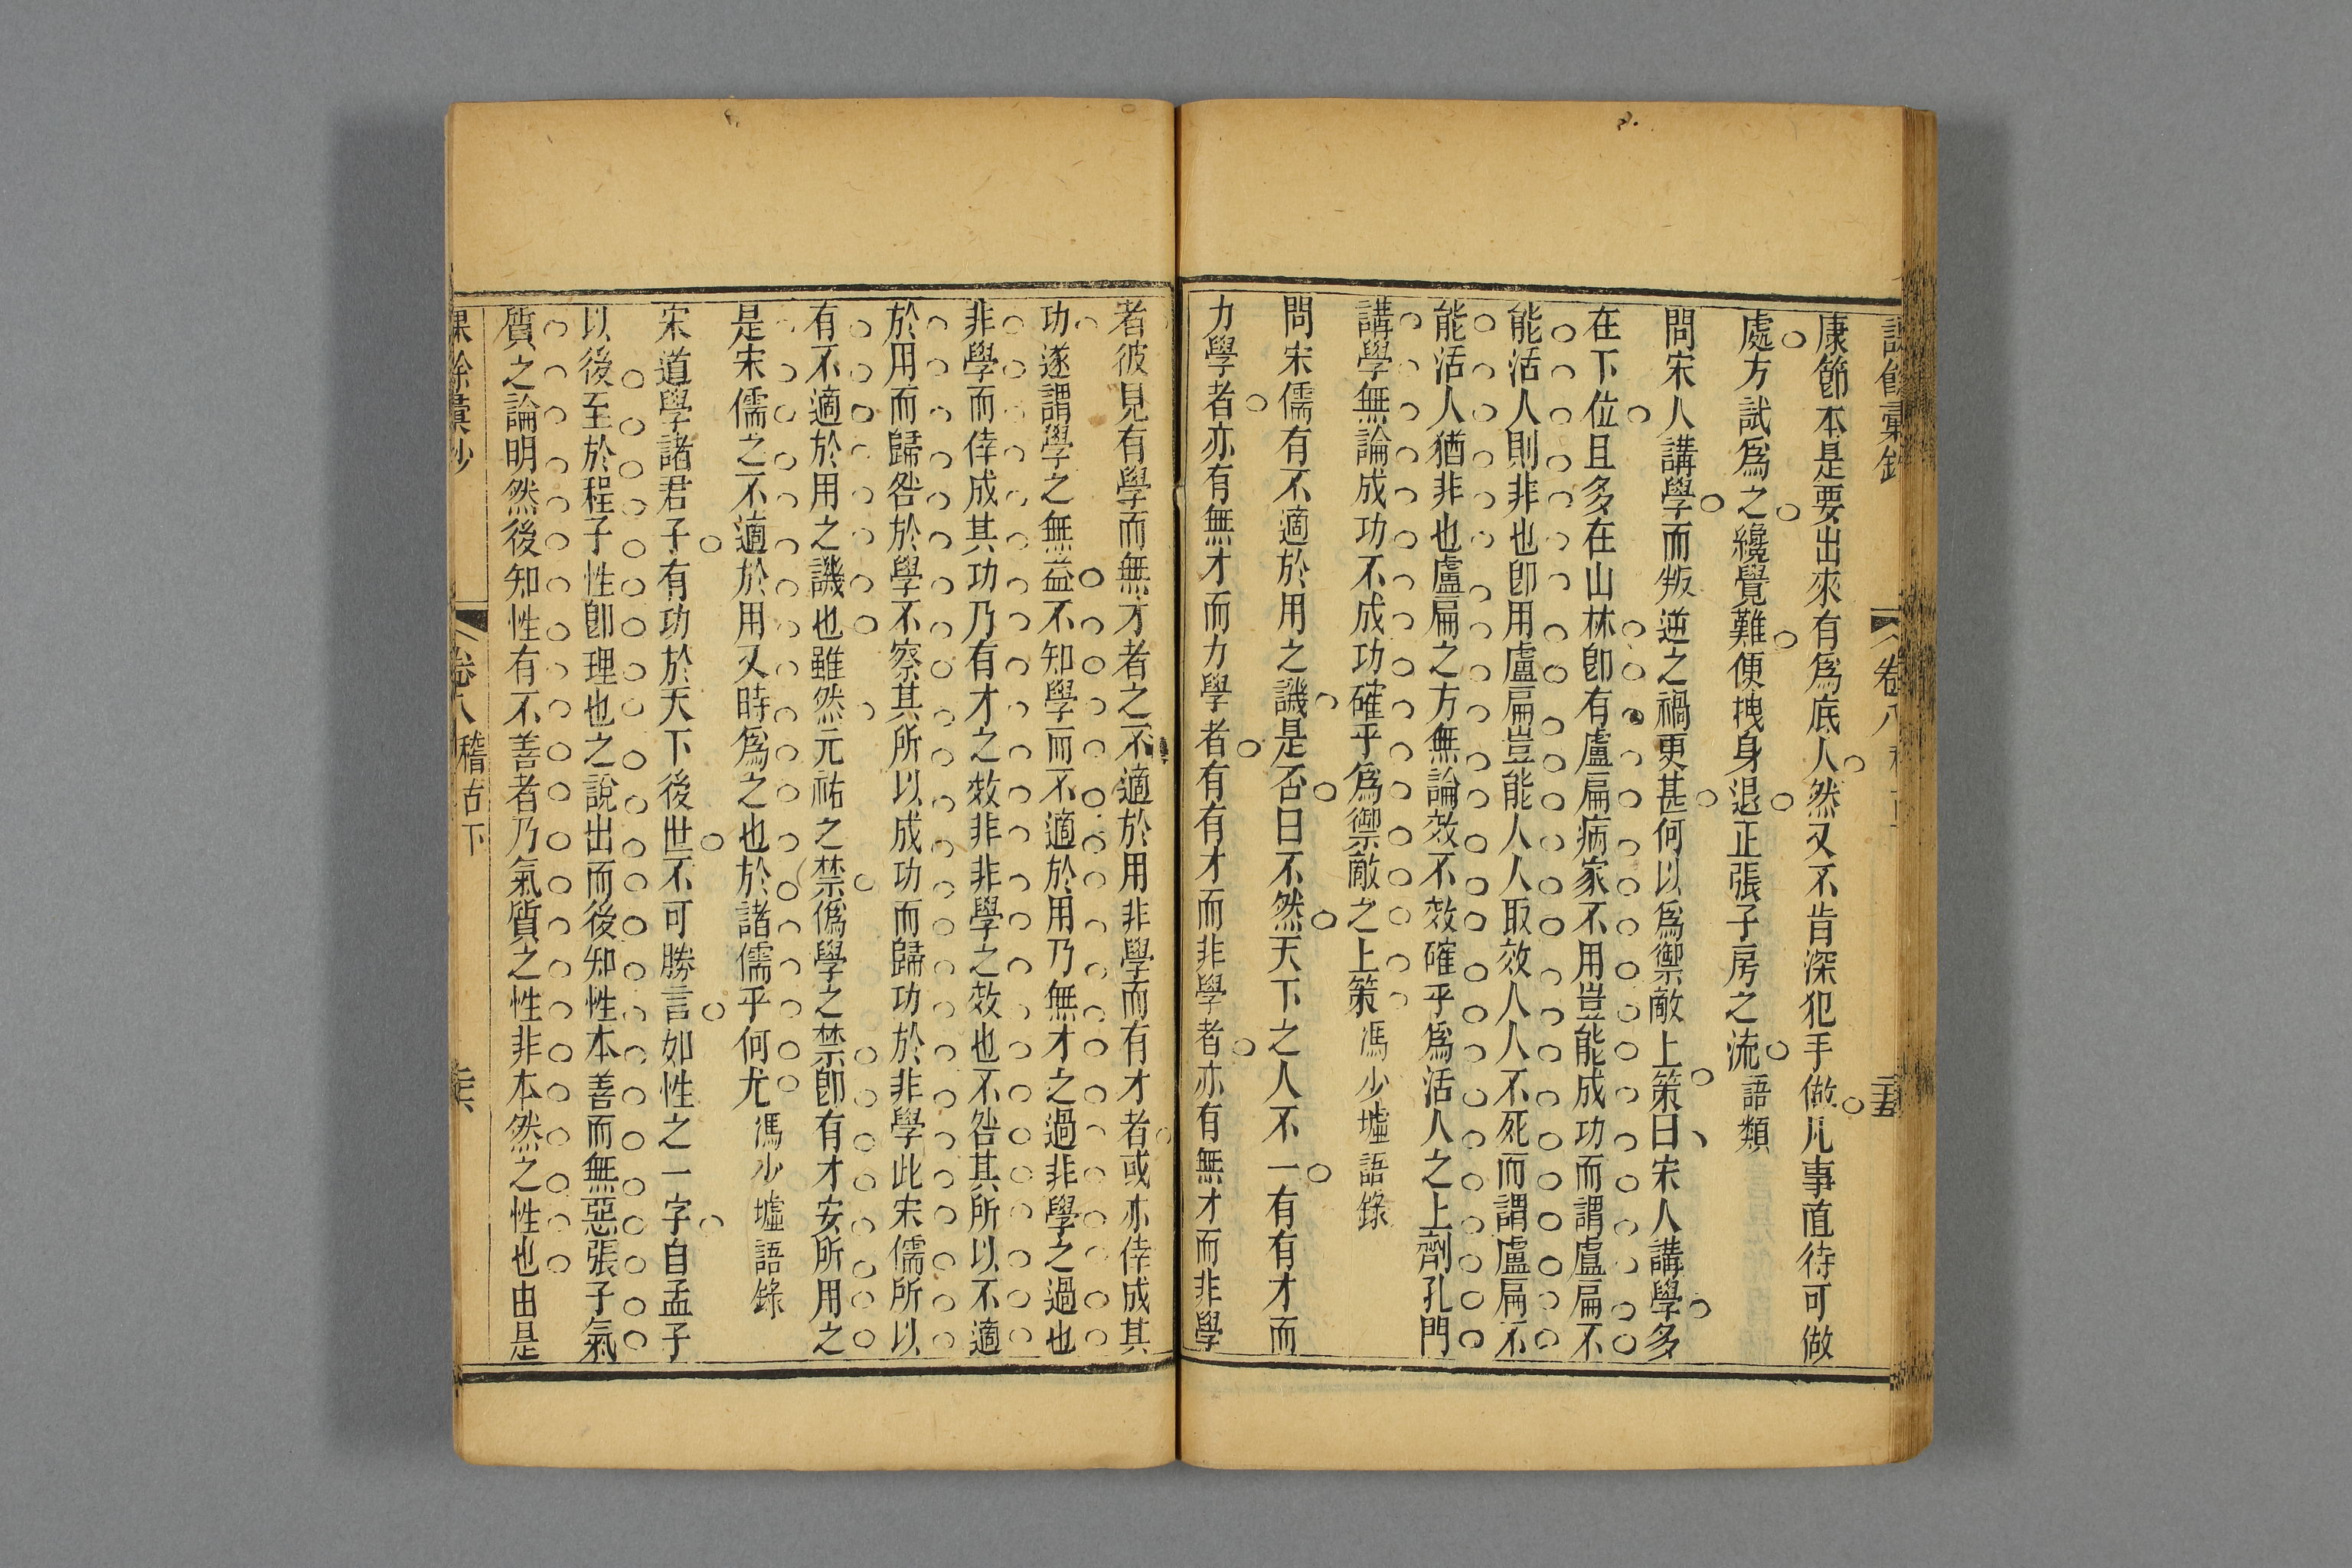 卷八
康節本是要出來有爲底人然又不肯深犯手做凡事直待可做
處方試爲之纔覺難便拽身退正張子房之流語類
問宋人講學而叛逆之禍更甚何以爲禦敵上策曰宋人講學多
在下位且多在山林卽有盧扁病家不用豈能成功而謂盧扁不
能活人則非也卽用盧扁豈能人人取效人人不死而謂盧扁不
能活人猶非也盧扁之方無論效不效確乎爲活人之上劑孔門
講學無論成功不成功確乎爲禦敵之上策馮少墟語錄
問宋儒有不適於用之譏是否曰不然天下之人不一有有才而
力學者亦有無才而力學者有有才而非學者亦有無才而非學
者彼見有學而無才者之不適於用非學而有才者或亦倖成其
功遂謂學之無益不知學而不適於用乃無才之過非學之過也
非學而倖成其功乃有才之效非非學之效也不咎其所以不適
於用而歸咎於學不察其所以成功而歸功於非學此宋儒所以
有不適於用之譏也雖然元祐之禁僞學之禁卽有才安所用之
是宋儒之不適於用又時爲之也於諸儒乎何尤馮少墟語錄
宋道學諸君子有功於天下後世不可勝言如性之一字自孟子
以後至於程子性卽理也之說出而後知性本善而無惡張子氣
質之論明然後知性有不善者乃氣質之性非本然之性也由是
課餘彙鈔 卷八 稽古下